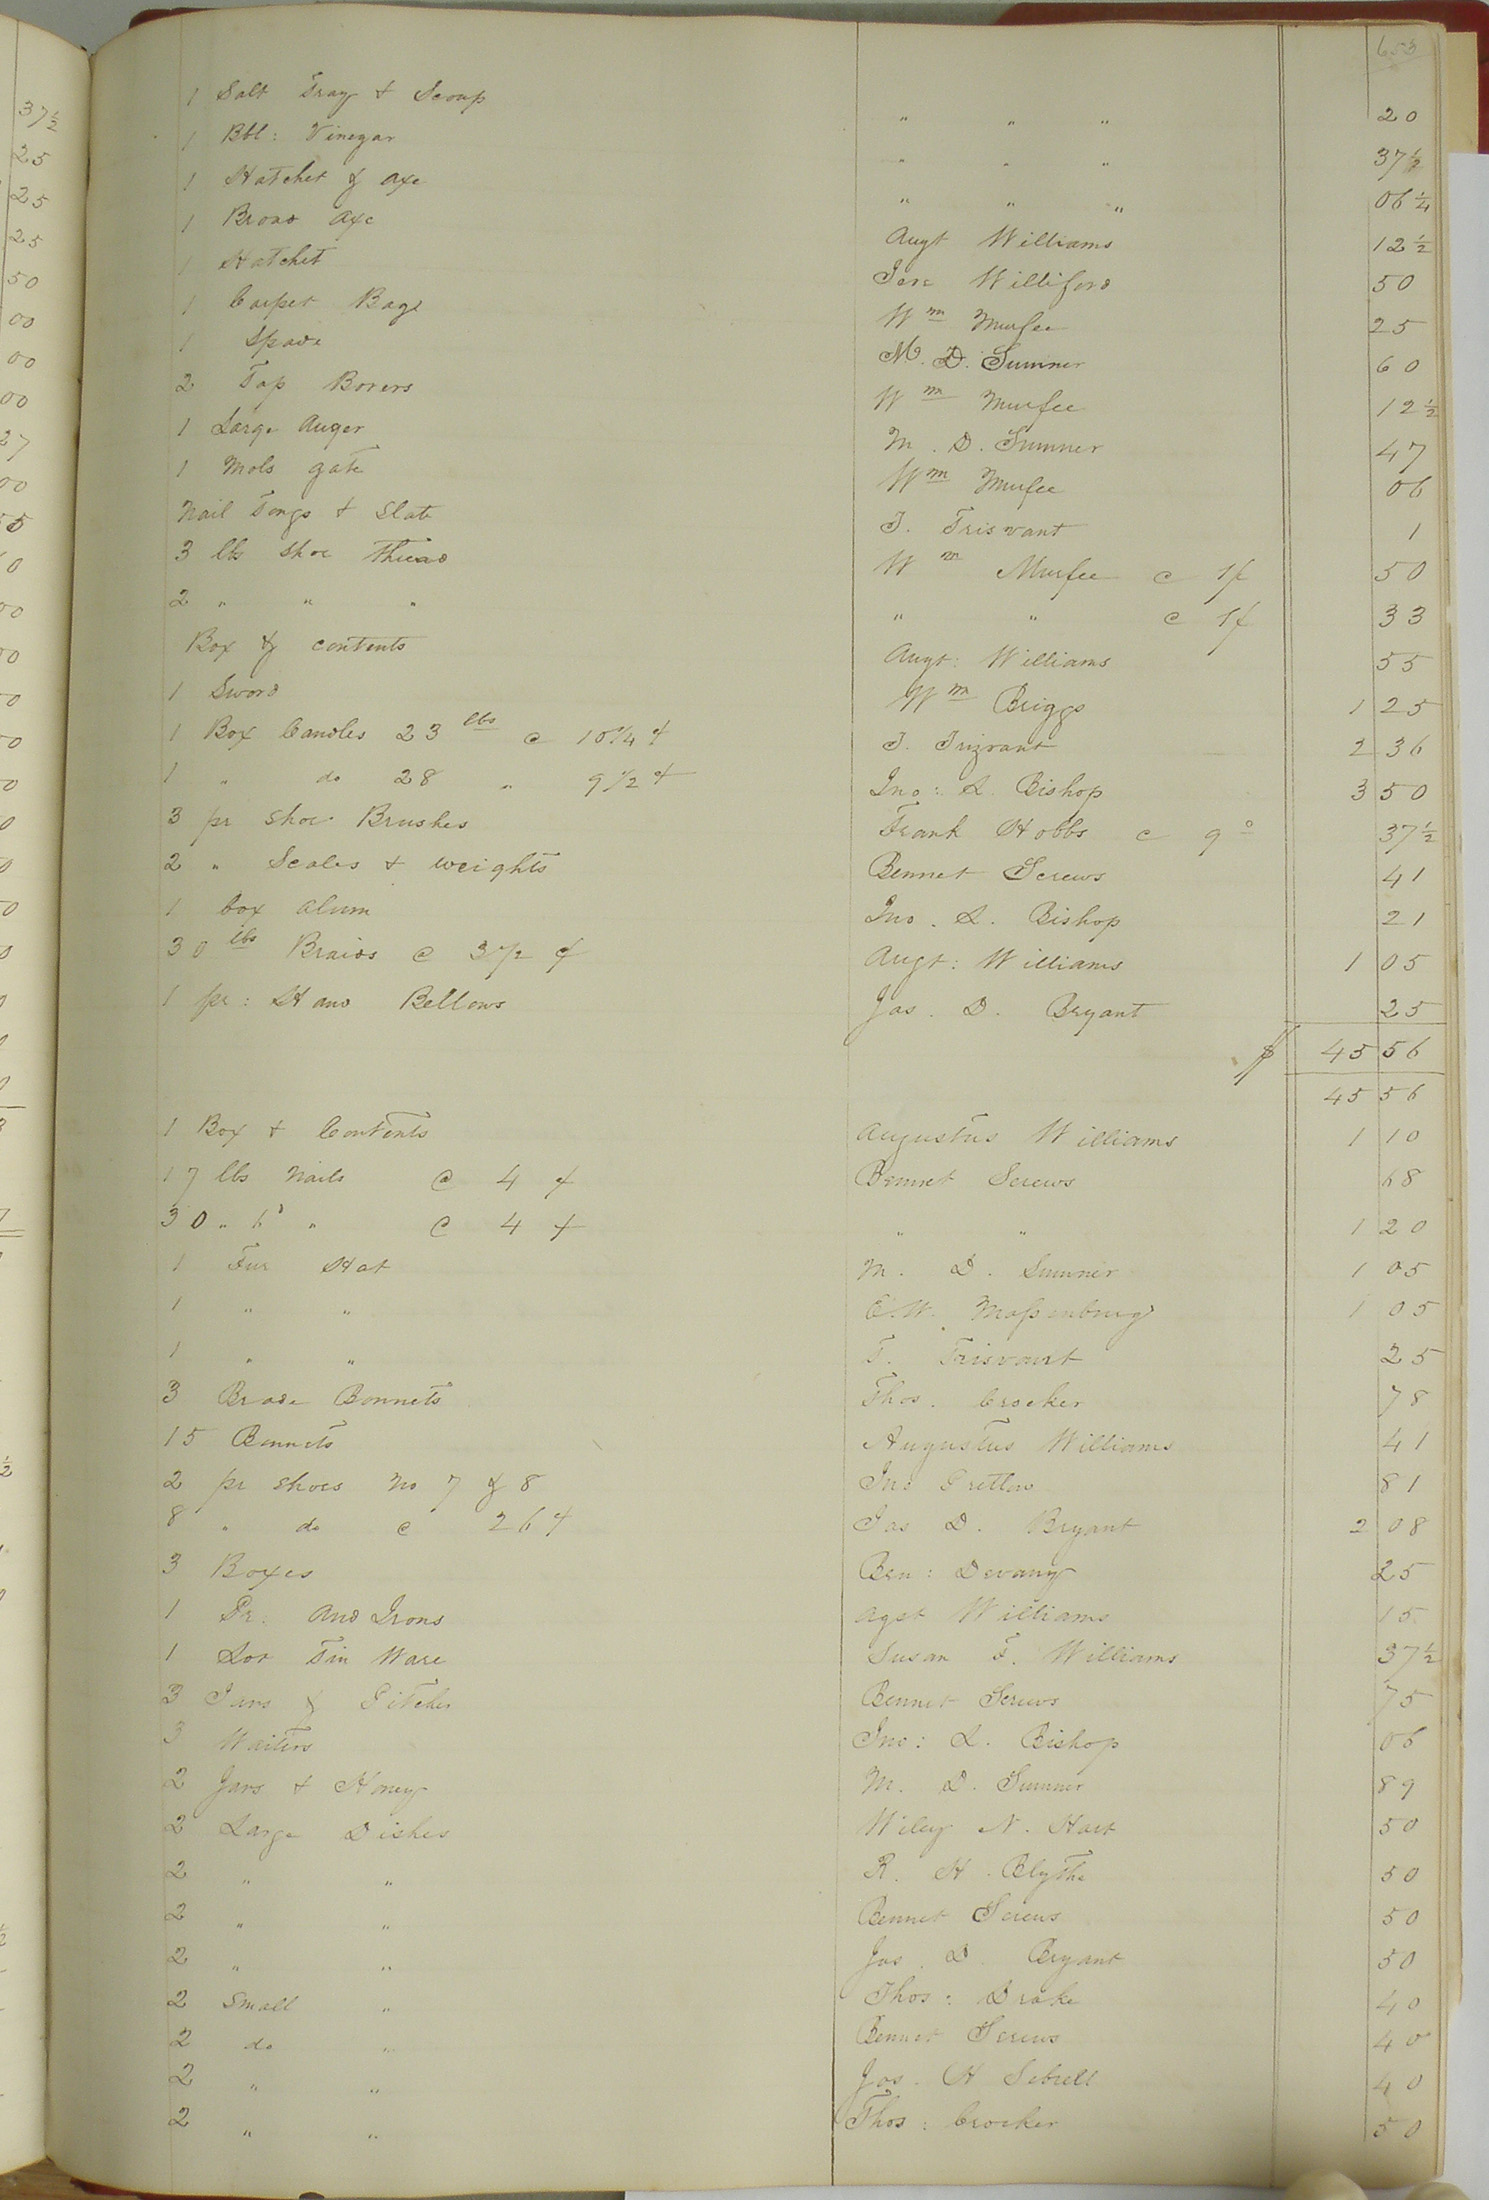 653
1 Salt Tray & Scoup " " " 20
1 Bbl: Vinegar " " " 37½
1 Hatchet & Axe " " " 06¼
1 Broad Axe Augt Williams 12½
1 Hatchet Jere Williford 50
1 Carpet Bag Wm Murfee 25
1 Spade M. D. Sumner 60
2 Tap Borers Wm Murfee 12½
1 Large Auger M. D. Sumner 47
1 Mols gate Wm Murfee 06
Nail Tongs & Slate T. Trisvant 1
3 lbs Shoe Thread Wm Murfee @ 1/ 50
2 " " " " " @ 1/ 33
Box & contents Augt: Williams 55
1 Sword Wm Briggs 1 25
1 Box Candles 23 lbs @ 10¼ ¢ T. Trizvant 2 36
1 " do 28 " 9½ ¢ Jno: L. Bishop 3 50
3 pr Shoe Brushes Frank Hobbs @ 9 37½
2 " Scales & weights Bennet Screws 41
1 box alum Jno. L. Bishop 21
30 lbs Braids @ 3½ ¢ Augt: Williams 1 05
1 pr: Hand Bellows Jas. D. Bryant 25
$ 45 56
45 56
1 Box & Contents Augustus Williams 1 10
17 lbs Nails @ 4 ¢ Bennet Screws 68
30 " 6d " @ 4 ¢ " " 1 20
1 Fur Hat M. D. Sumner 1 05
1 " " E. W. Massenburg 1 05
1 " " T. Trisvant 25
3 Brade Bonnets Thos. Crocker 78
15 Bonnets Augustus Williams 41
2 pr shoes No 7 & 8 Jno Pretlow 81
8 " do @ 26¢ Jas D. Bryant 2 08
3 Boxes Ben: Devany 25
1 Pr. And Irons Agst Williams 15
1 Lot Tin Ware Susan F. Williams 37½
3 Jars & Pitcher Bennet Screws 75
3 Waiters Jno: L. Bishop 06
2 Jars & Honey M. D. Sumner 89
2 Large Dishes Wiley N. Hart 50
2 " " R. H. Blythe 50
2 " " Bennet Screws 50
2 " " Jas. D. Bryant 50
2 Small " Thos: Drake 40
2 do " Bennet Screws 40
2 " " Jas. H Sebrell 40
2 " " Thos: Crocker 50